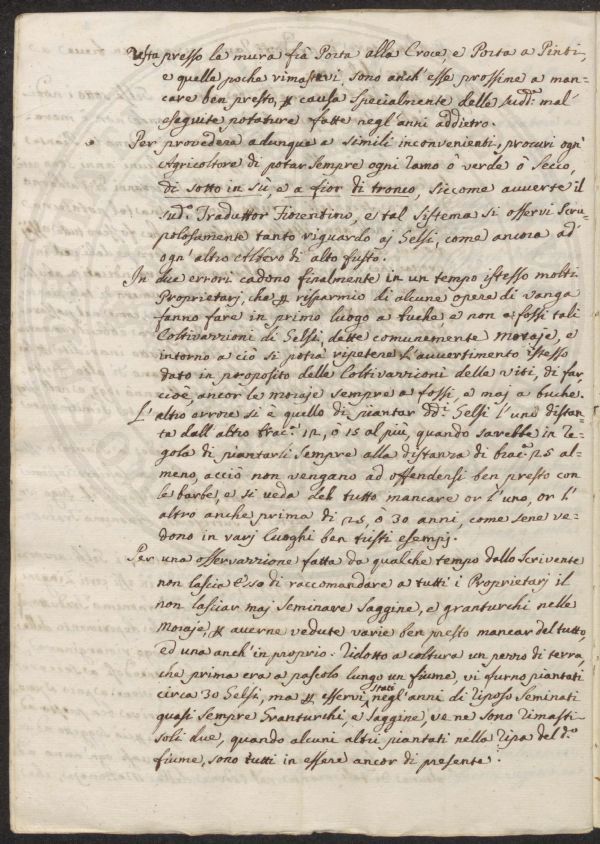 resta presso la mura frà Porta alla Croce, e Porta a Pinti,
e quelle poche rimastevi sono anch'esse prossime a man-
care ben presto, p causa specialmente delle sudd.e mal'
eseguite potature fatte negl'anni addietro.
Per provedere adunque a simili inconvenienti, procuri ogn'
Agricoltore di potar sempre ogni ramo ò verde ò secco,
di sotto in sù e a fior di tronco, siccome avverte il
sud.o Traduttor Fiorentino, e tal sistema si osservi scru-
polosamente tanto riguardo aj Gelsi, come ancora ad
ogn'altro Albero di alto fusto.
In due errori cadono finalmente in un tempo istesso molti
Proprietarj, che p risparmio di alcune opere di vanga
fanno fare in primo luogo a buche, e non a fossi tali
Coltivazzioni di Gelsi, dette comunemente Moraje, e
intorno a ciò si potrà ripetere l'avvertimento istesso
dato in proposito delle Coltivazzioni delle viti, di far,
cioè, ancor le moraje sempre a fossi, e maj a buche.
L'altro errore si è quello di piantar dd.i Gelsi l'uno distan-
te dall'altro brac.a 12, ò 15 al più, quando sarebbe in re-
gola di piantarli sempre alla distanza di brac.a 25 al-
meno, acciò non vengano ad offendersi ben presto con
le barbe, e si veda del tutto mancare or l'uno, or l'
altro anche prima di 25, ò 30 anni, come se ne ve-
dono in varj luoghi ben tristi esempj.
Per una osservazzione fatta da qualche tempo dallo scrivente
non lascia esso di raccomandare a tutti i Proprietarj il
non lasciar maj seminare saggine, e granturchi nelle
moraje, p averne vedute varie ben presto mancar del tutto,
ed una anch'in proprio. Ridotto a coltura un pezzo di terra,
che prima era a pascolo lungo un fiume, vi furno piantati
circa 30 Gelsi, ma p esservi stati negl'anni di riposo seminati
quasi sempre Granturchi, e saggine, ve ne sono rimasti
soli due, quando alcuni altri piantati nella ripa del d.o
fiume, sono tutti in essere ancor di presente.